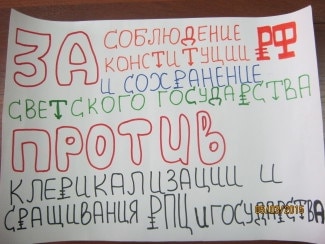 ЗА СОБЛЮДЕНИЕ
КОНСТИТУЦИИ РФ
И СОХРАНЕНИЕ
СВЕТСКОГО ГОСУДАРСТВА
ПРОТИВ
КЛЕРИКАЛИЗАЦИИ И
СРАЩИВАНИЯ РПЦ И ГОСУДАРСТВА